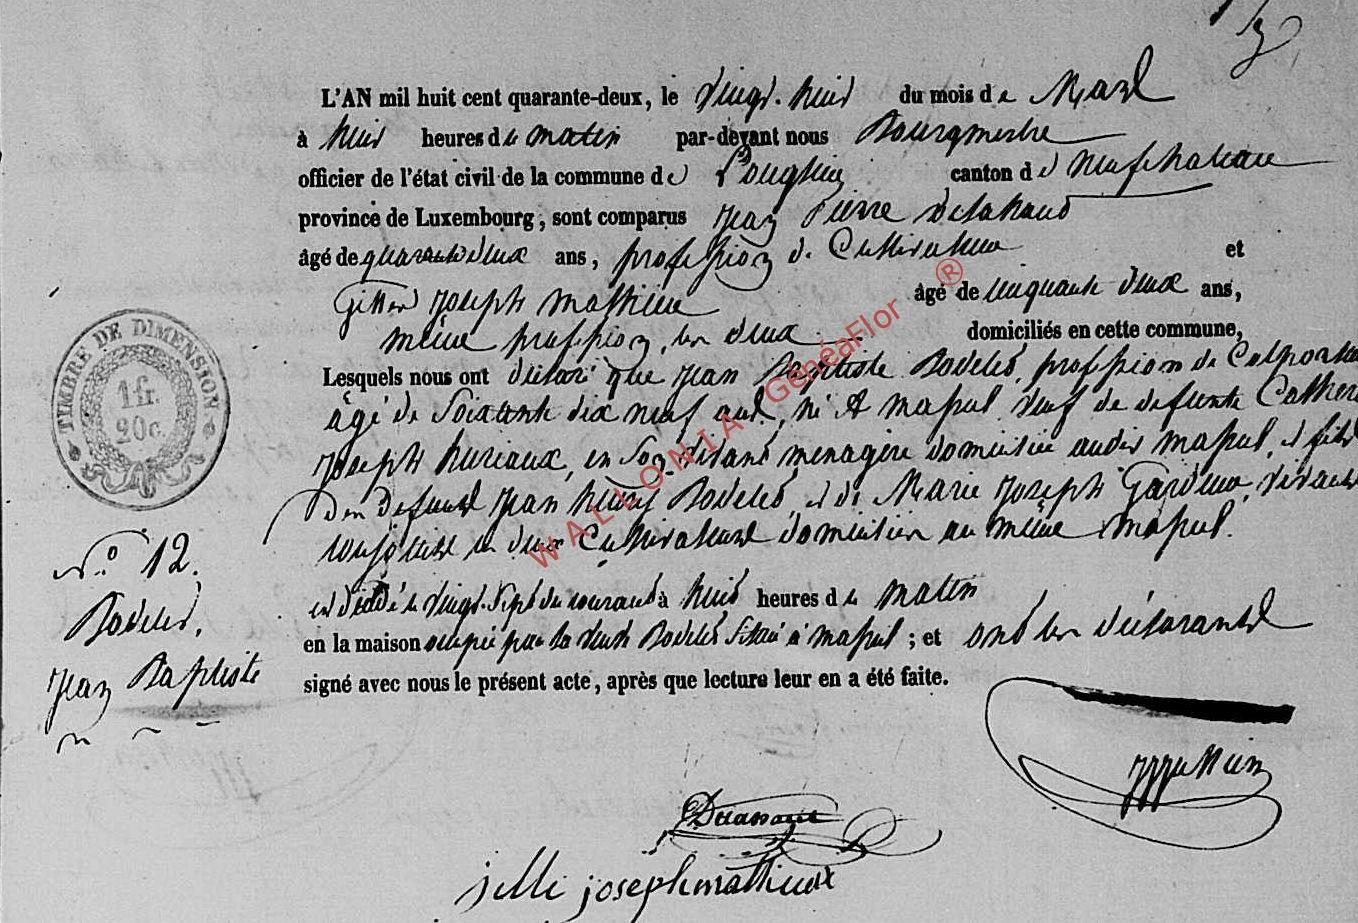 L'AN mil huit cent quarante-deux, le vingt-huit du mois de Mars
à huit heures du matin par-devant nous Bourgmestre
officier de l'état civil de la commune de Longlier canton de Neufchateau
province de Luxembourg, sont comparus Jean Pierre
âgé de quarante deux ans, profession de Cultivateur et
Joseph Mathieux âgé de cinquante deux ans,
même profession, les deux domiciliés en cette commune,
Lesquels nous ont déclaré que Jean Baptiste Bodelet, profession de
âgé de Soixante dix neuf ans, né à Massul, veuf de defunte
Joseph huriaux, en Son vivant menagère domiciliée audit Massul, et fils
Des Defunts Jean henry Bodelet, et de Marie Joseph
les deux Cultivateurs domiciliés au même Massul.
est décédé le vingt-sept du courant à huit heures de matin
en la maison occupée par la veuve Bodelet située à Massul ; et ont les déclarants
signé avec nous le présent acte, après que lecture leur en a été faite.
TIMBRE DE DIMENSION
1 fr.
20 c.
N.° 12.
Bodelet,
Jean Baptiste
WALLONIA GénéaFlor ®
joseph mathieux